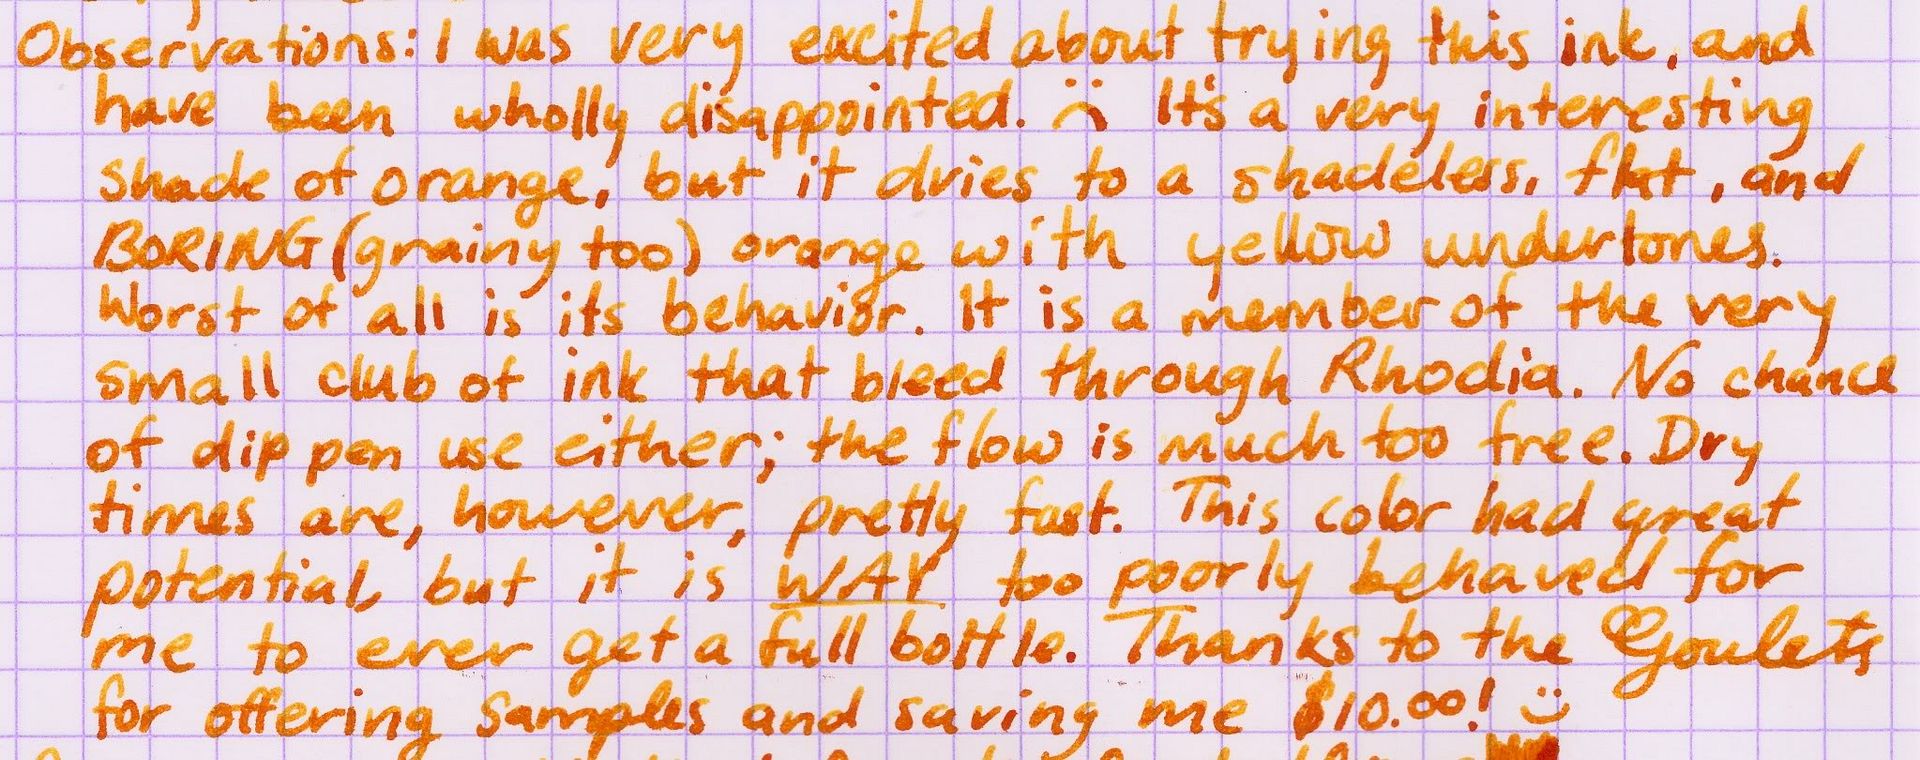 Observations: I was very excited about trying this ink, and
have been wholly disappointed. :( It's a very interesting
shade of orange, but it dries to a shadeless, flat, and
BORING (grainy too) orange with yellow undertones.
Worst of all is its behavior. It is a member of the very
small club of ink that bleed through Rhodia. No chance
of dip pen use either; the flow is much too free. Dry
times are, however, pretty fast. This color had great
potential, but it is WAY too poorly behaved for
me to ever get a full bottle. Thanks to the Goulets
for offering samples and saving me $10.00! :)